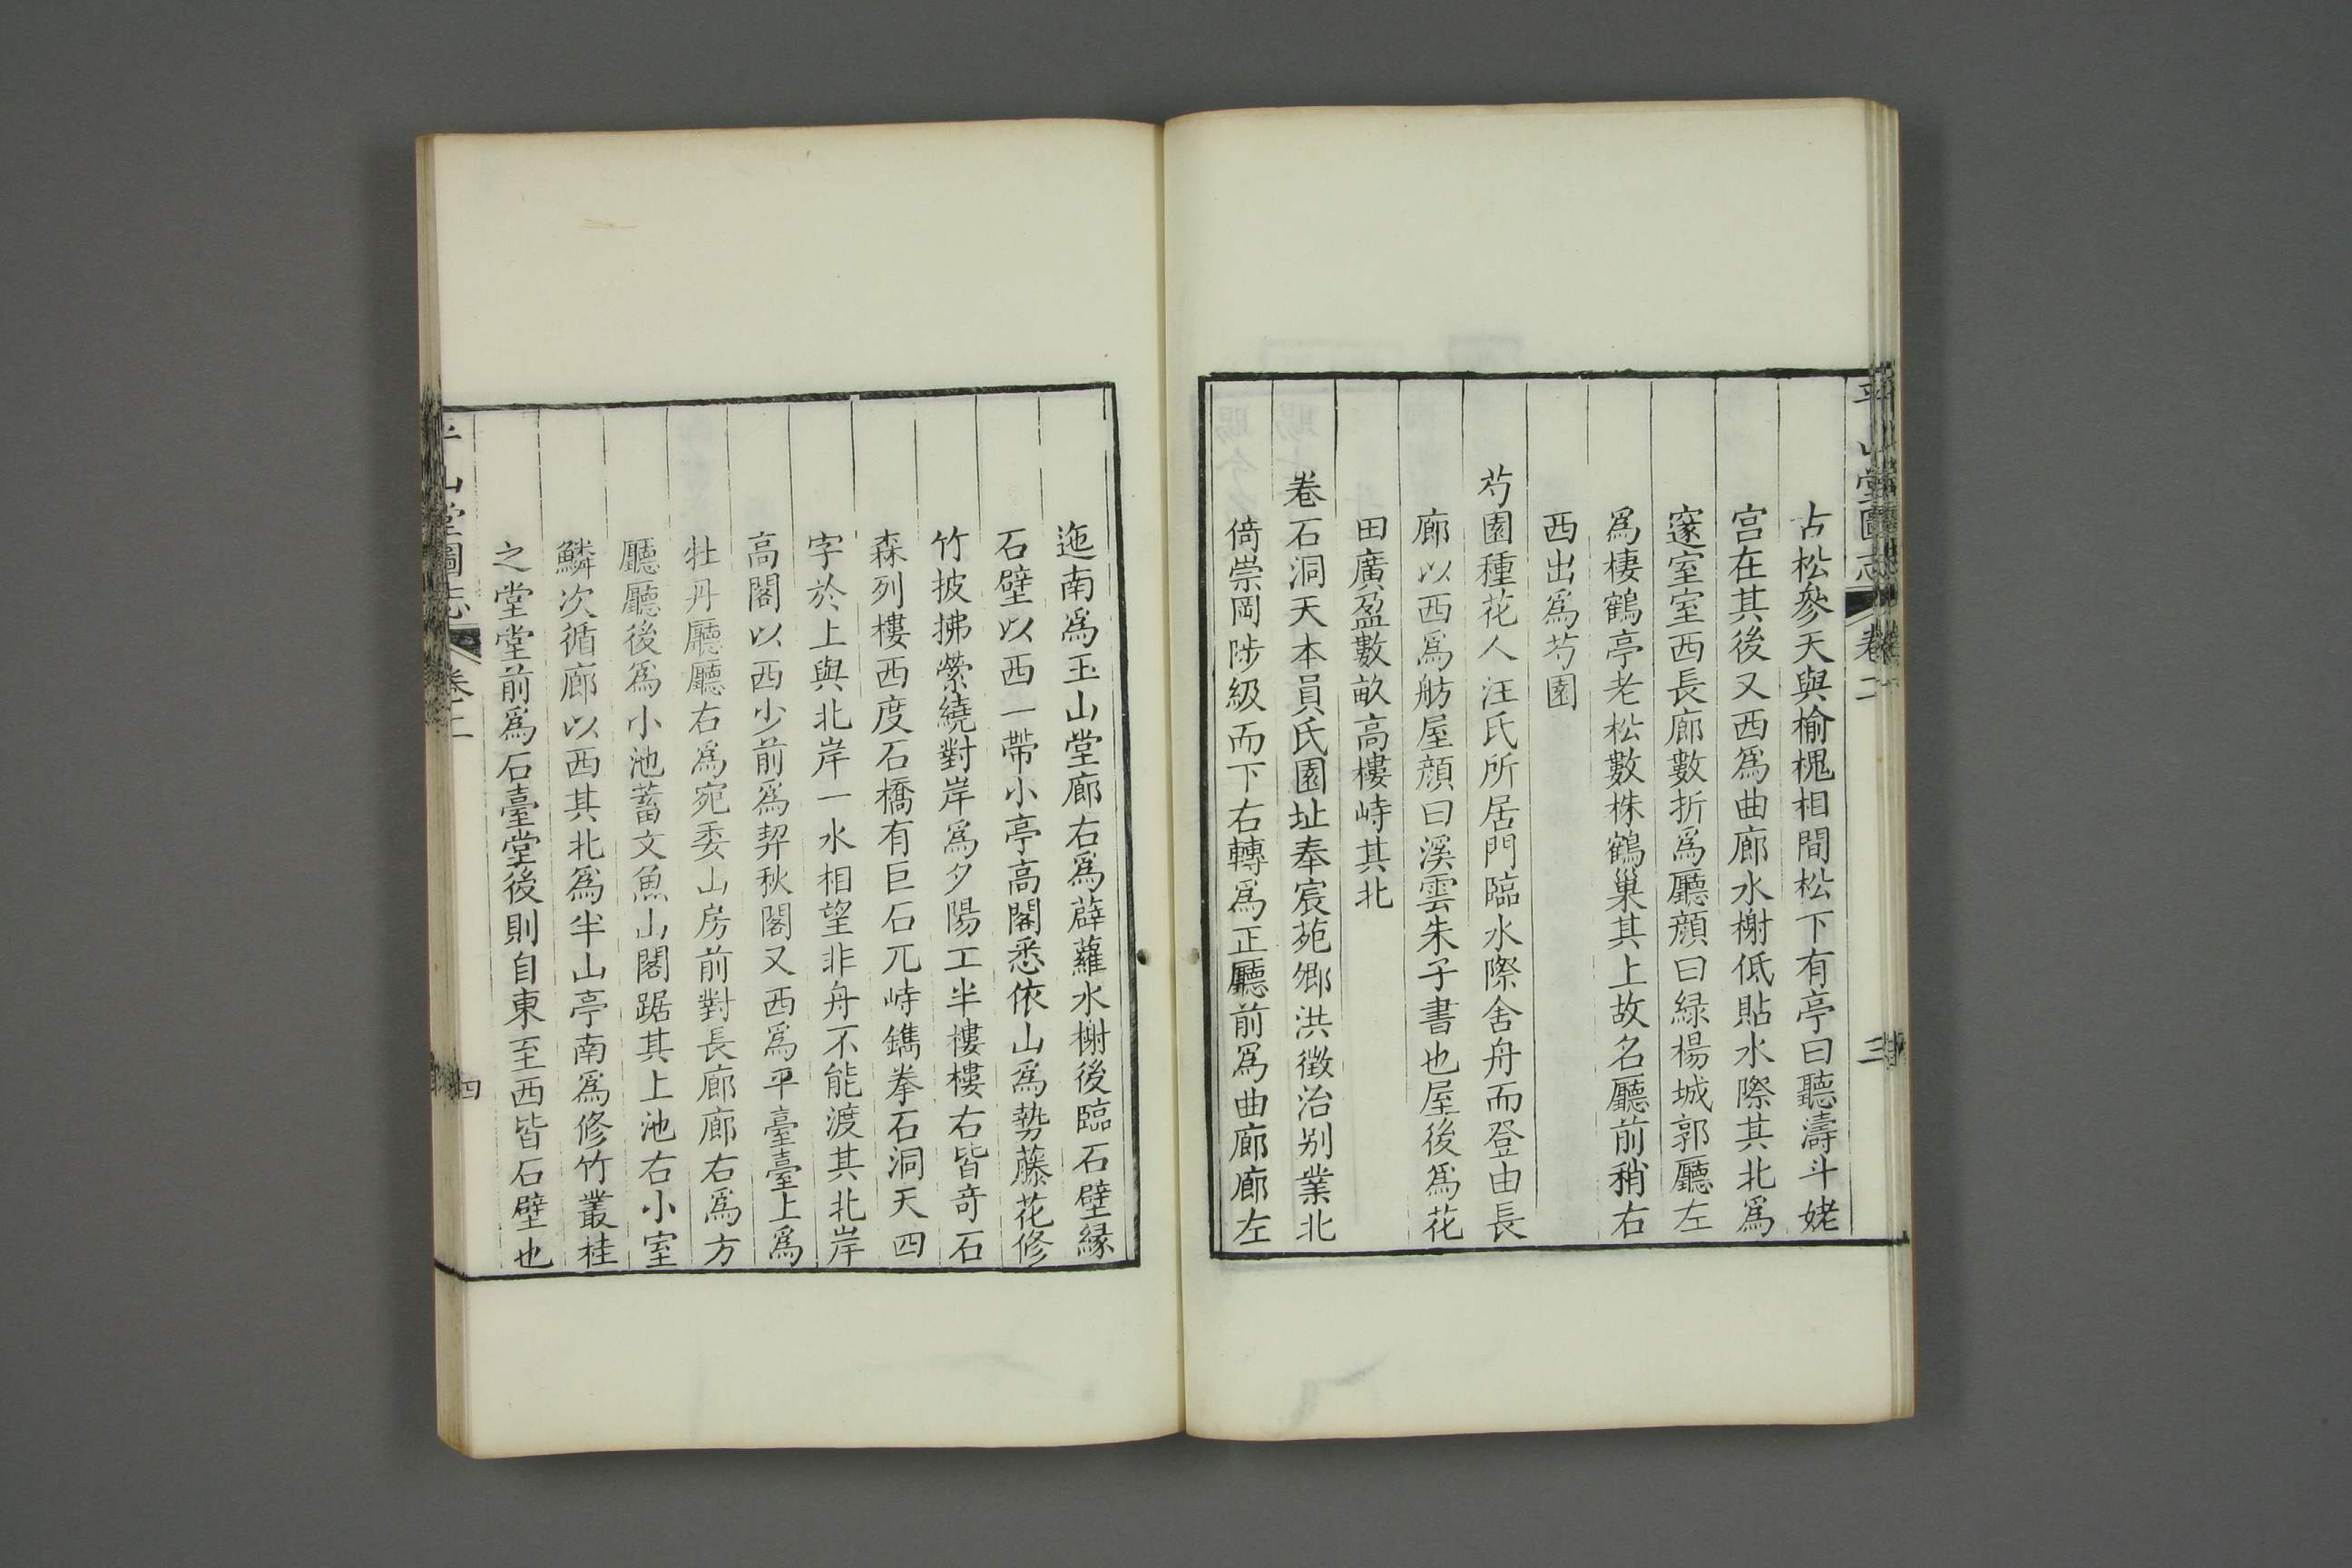 平山堂圖志 卷二 三
古松參天與榆槐相間松下有亭曰聽濤斗姥
宮在其後又西爲曲廊水榭低貼水際其北爲
邃室室西長廊數折爲廳顏曰綠楊城郭廳左
爲棲鶴亭老松數株鶴巢其上故名廳前稍右
西出爲芍園
芍園種花人汪氏所居門臨水際舍舟而登由長
廊以西爲舫屋顏曰溪雲朱子書也屋後爲花
田廣盈數畝高樓峙其北
卷石洞天本員氏園址奉宸苑卿洪徵治别業北
倚崇岡陟級而下右轉爲正廳前爲曲廊廊左
迤南爲玉山堂廊右爲薜蘿水榭後臨石壁緣
石壁以西一帶小亭高閣悉依山爲勢藤花修
竹披拂縈繞對岸爲夕陽工半樓樓右皆奇石
森列樓西度石橋有巨石兀峙鐫拳石洞天四
字於上與北岸一水相望非舟不能渡其北岸
高閣以西少前爲契秋閣又西爲平臺臺上爲
牡丹廳廳右爲宛委山房前對長廊廊右爲方
廳廳後爲小池蓄文魚山閣踞其上池右小室
鱗次循廊以西其北爲半山亭南爲修竹叢桂
之堂堂前爲石臺堂後則自東至西皆石壁也
平山堂圖志 卷二 四